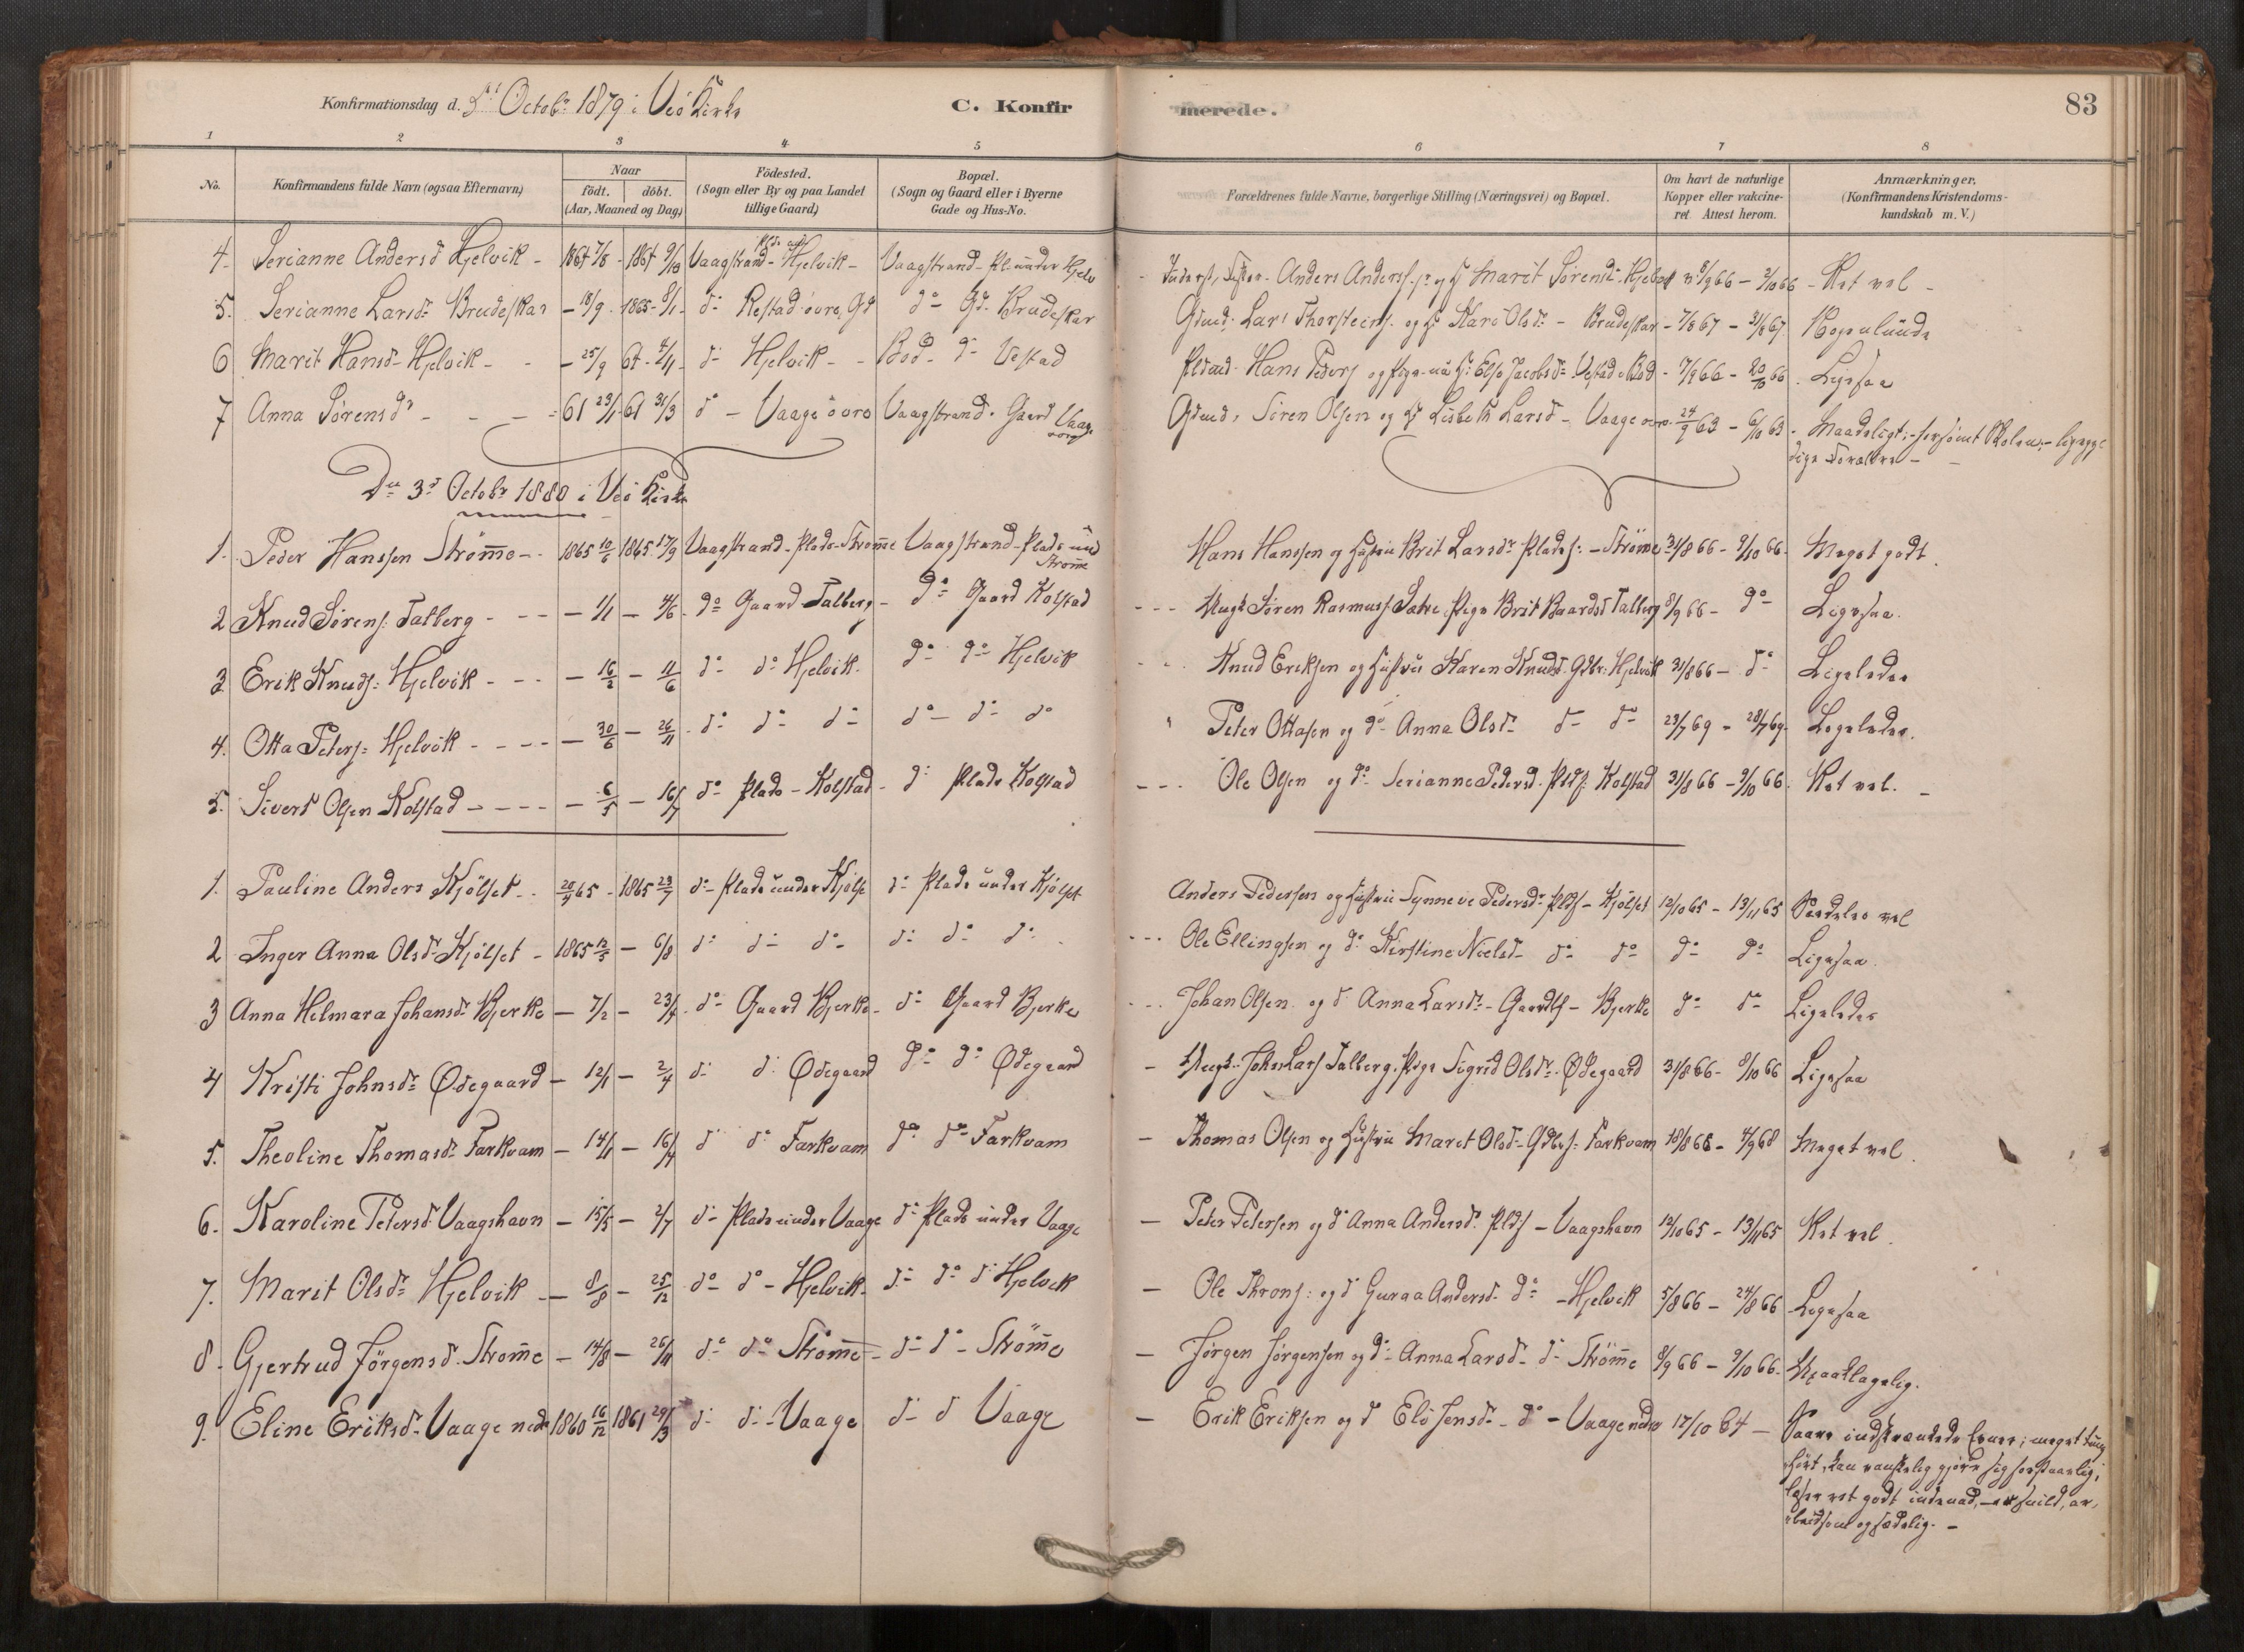 Konfirmationsdag d. 5te Octobr 1879 i Veö Kirke
C. Konfirmerede.
83
1 2 3 4 5 6 7 8
No.
Konfirmandens fulde Navn (ogsaa Efternavn)
Naar
födt. döbt.
(Aar, Maaned og Dag.)
Födested.
(Sogn eller By og paa Landet
tillige Gaard)
Bopæl.
(Sogn og Gaard eller i Byerne
Gade og Hus-No.
Forældrenes fulde Navne, borgerlige Stilling (Næringsvei) og Bopæl.
Om havt de naturlige
Kopper eller vakcine-
ret Attest herom.
Anmærkninger.
(Konfirmandens Kristendoms-
kundskab m. V.)
4. Serianne Andersd Hjelvik - 1864 7/8 - 1864 9/10 Vaagstrand - Hjelvik - Vaagstrand - Pl. under Hjelv Anders Anderss. og H Marit Sörensd. Hjelvik 8/9 66 - 9/10 66 - Ret vel -
5. Serianne Larsdr Brudeskar - 18/9 - 1865 8/1 - do Restad övre, Gd do Gd. Brudeskar Gdmd. Lars Thorsteins. og H Kari Olsdr - Brudeskar - 7/8 67 - 31/8 67. Nogenlunde
6 Marit Hansd. Hjelvik - - 25/9 64 - 4/11 - do Hjelvik - Bod - Gd Vestad Hans Peders og Else Jacobsdr Vestad i Bod - 7/9 66 - 20/10 66. Ligesaa
7 Anna Sörensdr - - - 61 23/1 61 31/3 do - Vaage övre Vaagstrand. Gaard Vaage
övre Gdmd. Sören Olsen og H Lisbeth Larsd - Vaage övre. 24/9 63 - 6/10 63 - Maadeligt; - forsömt Skolen; - ligegyl-
dige Forældre -
Den 3die Octobr 1880 i Veö Kirke
1. Peder Hanssen Strömme - 1865 10/6 1865 17/9 Vaagstrand - Plads - Strömme Vaagstrand - Plads und
Strömme Hans Hanssen og Hustru Brit Larsdr Pladss: - Strömme 31/8 66 - 9/10 66 - Meget godt.
2 Knud Sörens. Talberg - - - 1/1 - 4/6 - do Gaard Talberg - do Gaard Kolstad - - - Ungk Sören Rasmuss Sætre, Pige Brit Baardsd Talberg 8/9 66 - do - Ligesaa.
3 Erik Knuds: Hjelvik - - - 16/2 - 11/6 do do Hjelvik. do do Hjelvik Knud Eriksen og Hustru Karen Knudsd. Gdbr: Hjelvik 31/8 66 - do Ligeledes
4. Otta Peters: Hjelvik - - - - 30/6 - 26/11 - do do do do do do Peter Ottasen og do Anna Olsdr do do 23/7 69 - 28/7 69 - Ligeledes.
5. Sivert Olsen Kolstad - - - - 6/5 - 16/7 do Plads - Kolstad - do Plads Kolstad - - - Ole Olsen og do Serianne Pedersd. Pldss. Kolstad 31/8 66 - 9/10 66. Ret vel. -
1. Pauline Anders Kjölset - 20/4 65 - 1865 23/7 do - Plads under Kjölse do Plads under Kjölset Anders Pedersen og Hustru Synneve Pedersdr Plds - Kjölset 12/10 65 - 13/11 65 Særdeles vel
2 Inger Anna Olsdr Kjölset - 1865 12/5 - 6/8 do do do do do do - - - Ole Ellingsen og do Kirstine Nielsd. do do do do Ligesaa.
3 Anna Helmara Johansdr Bjerke - 7/2 - 23/4 - do Gaard Bjerke - do Gaard Bjerke - - - Johan Olsen og do Anna Larsdr - Gaards - Bjerke do do Ligeledes
4 Kristi Johnsdr Ödegaard - 12/1 - 2/4 do do Ödegaard do do Ödegaard - Ungk. John Lars Talberg. Pige Sigrid Olsdr. Ödegaard 31/8 66 - 9/10 66 Ligesaa
5. Theoline Thomasdr Farkvam - 14/1 - 16/4 do do Farkvam do do Farkvam - Thomas Olsen og Hustru Marit Olsdr - Farkvam 10/8 68 - 4/9 68 Meget vel.
6. Karoline Petersd. Vaagshavn - 15/5 - 2/7 do Plads under Vaage do Plads under Vaage - Peter Petersen og do Anna Andersdr. Plds - Vaagshavn 12/10 65 - 13/11 65 Ret vel.
7. Marit Olsdr Hjelvik - 8/8 - 25/12 do do - Hjelvik - do do Hjelvik - Ole Throns: og do Guraa Andersd. do - Hjelvik 5/8 66 - 24/8 66 Ligesaa
8. Gjertrud Jörgensd. Strömme - 14/8 - 26/11 do do Strömme - do do - Strömme - Jörgen Jörgensen og do Anna Larsd. do Strömme 8/9 66 - 9/10 66 - Upaaklagelig.
9. Eline Eriksdr Vaage nedr 1860 16/12 1861 29/3 do do - Vaage do do Vaage - Erik Eriksen og do Jensdr - do - Vaage nedre 17/10 64 - Saare indskrænkede Evner; meget tung
hört, kan vanskelig gjöre sig forstaaelig;
læser ret godt indenad, - er snild, ar-
beidsom og sædelig. -